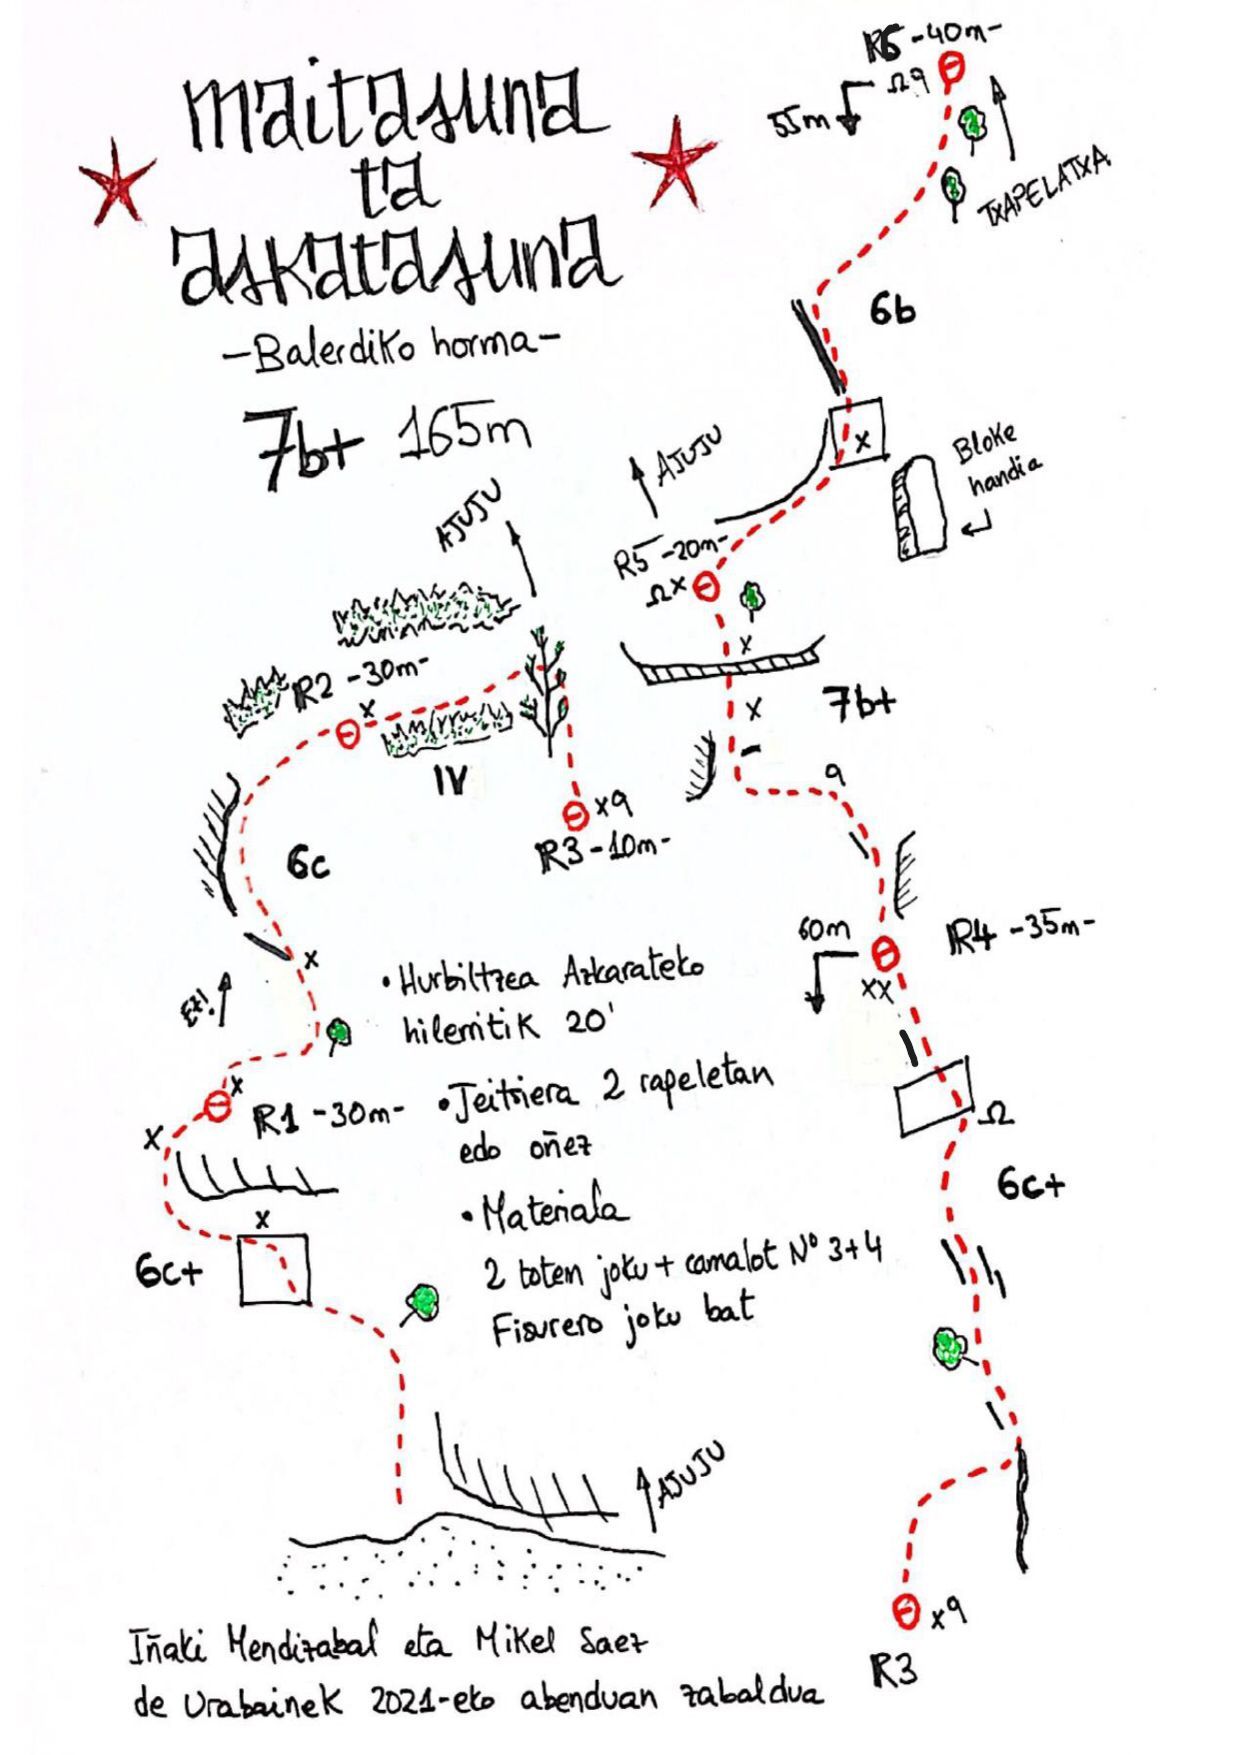 maitasuna
ta
askatasuna
-Balerdiko horma-
7b+ 165m
R6 -40m-
55m
TXAPELATXA
6b
Bloke
handia
AJUJU
R5 -20m-
7b+
AJUJU
R2 -30m-
IV
R3 -10m-
6c
Ez!
R1 -30m-
6c+
60m
R4 -35m-
6c+
R3
• Hurbiltzea Azkarateko
hilerritik 20'
• Jeitsiera 2 rapeletan
edo oñez
• Materiala
2 totem joku + camalot Nº 3+4
Fisurero joku bat
AJUJU
Iñaki Mendizabal eta Mikel Saez
de Urabainek 2021-eko abenduan zabaldua